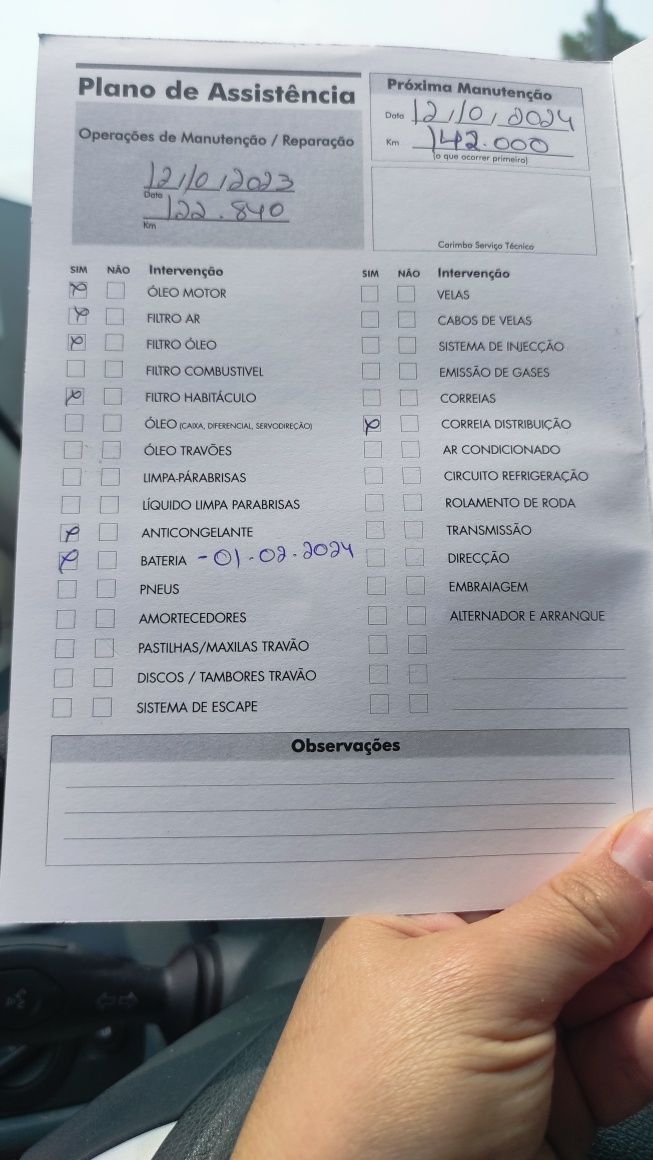 Plano de Assistência
Operações de Manutenção / Reparação
12/10/2023
Data
122.840
Km
Próxima Manutenção
Data 12/10/2024
Km 142.000
(o que ocorrer primeiro)
Carimbo Serviço Técnico
SIM NÃO Intervenção
ÓLEO MOTOR
FILTRO AR
FILTRO ÓLEO
FILTRO COMBUSTIVEL
FILTRO HABITÁCULO
ÓLEO (CAIXA, DIFERENCIAL, SERVODIREÇÃO)
ÓLEO TRAVÕES
LIMPA-PÁRABRISAS
LÍQUIDO LIMPA PARABRISAS
ANTICONGELANTE
BATERIA - 01-02-2024
PNEUS
AMORTECEDORES
PASTILHAS/MAXILAS TRAVÃO
DISCOS / TAMBORES TRAVÃO
SISTEMA DE ESCAPE
SIM NÃO Intervenção
VELAS
CABOS DE VELAS
SISTEMA DE INJECÇÃO
EMISSÃO DE GASES
CORREIAS
CORREIA DISTRIBUIÇÃO
AR CONDICIONADO
CIRCUITO REFRIGERAÇÃO
ROLAMENTO DE RODA
TRANSMISSÃO
DIRECÇÃO
EMBRAIAGEM
ALTERNADOR E ARRANQUE
Observações